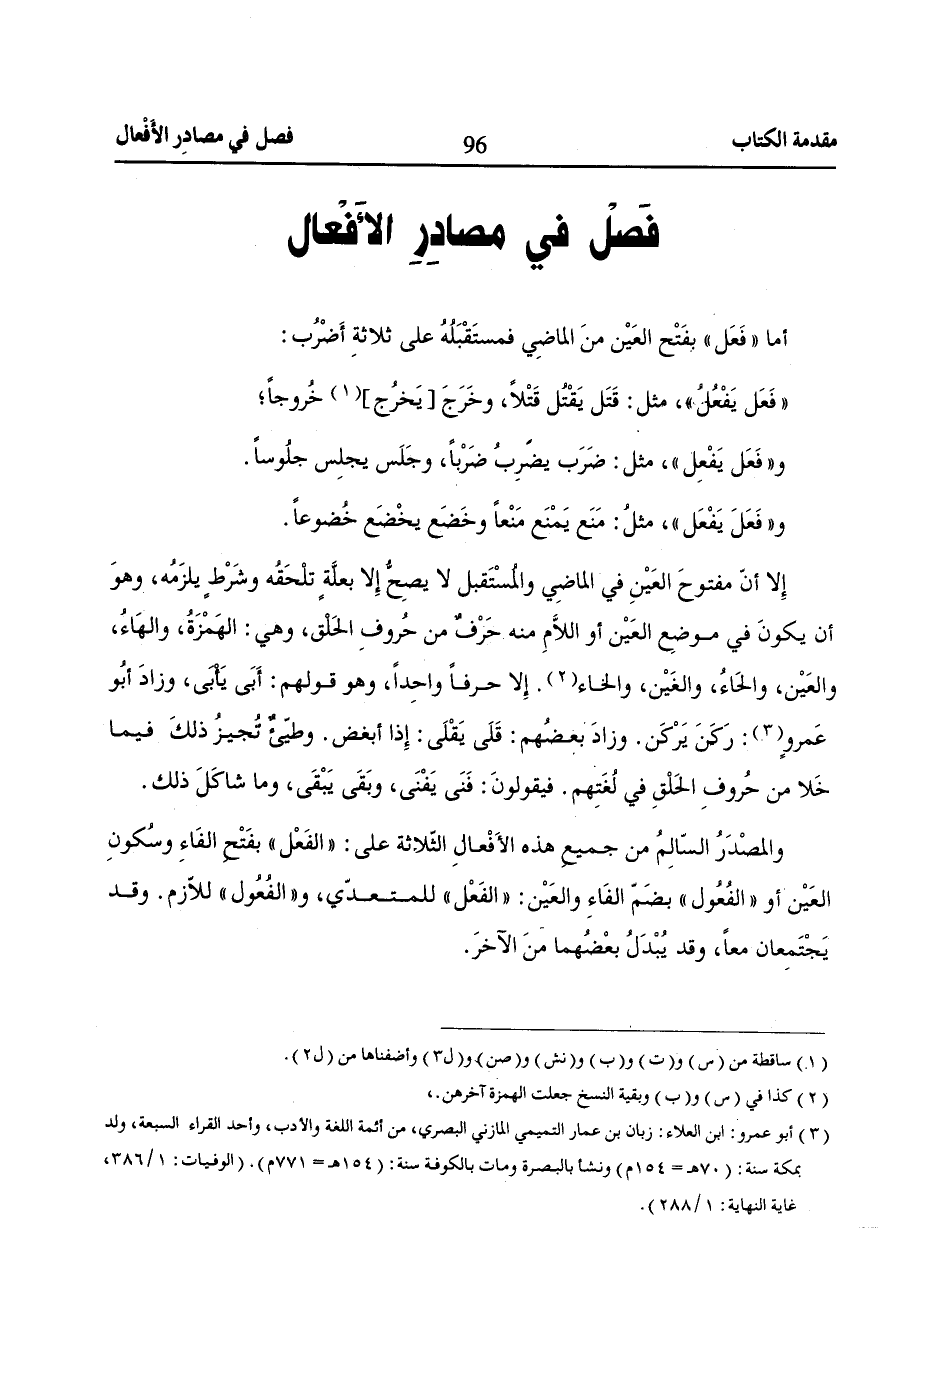 مقدمة الكتاب 96 فصل في مصادِر الأَفْعال
فَصْل في مصادِرِ الأَفْعال
أما « فَعَل » بفَتْح العَيْن منَ الماضي فمستَقْبَلُهُ على ثلاثةِ أَضْرُب :
« فَعَل يَفْعُلُ »، مثل : قَتَل يَقْتُل قَتْلاً، وخَرَجَ [ يَخرُج ](١) خُروجاً؛
و« فَعَل يَفْعِل »، مثل : ضرَب يضْرِبُ ضَرْباً، وجَلَس يجلِس جلُوساً .
و« فَعَلَ يَفْعَل »، مثلُ : مَنَع يَمْنَع مَنْعاً وخَضَع يخْضَع خُضوعاً .
إلا أنّ مفتوحَ العَيْنِ في الماضي والمُسْتَقبل لا يصحُّ إلا بعلَّةٍ تلْحَقُه وشَرْطٍ يلزَمُه، وهوَ
أن يكونَ في موضع العَيْن أو اللاَّم منه حَرْفٌ من حُروف الحَلْق، وهي : الهَمْزَةُ، والهاءُ،
والعَيْن، والحَاءُ، والغَيْن، والخاء(٢) . إلا حرفاً واحداً، وهو قولهم : أَبَى يَأْبَى، وزادَ أبُو
عَمرٍو(٣) : ركَنَ يَرْكَن . وزادَ بعضُهم : قَلَى يَقْلَى : إذا أبغض . وطيِّئٌ تُجيزُ ذلكَ فيما
خَلا من حُروفِ الحَلْقِ في لُغَتِهم . فيقولونَ : فَنَى يَفْنَى، وبَقَى يَبْقَى، وما شاكَلَ ذلك .
والمصْدَرُ السّالمُ من جميعِ هذه الأفْعال الثّلاثة على : « الفَعْل » بفَتْحِ الفَاء وسُكونِ
العَيْن أو « الفُعُول » بضَمّ الفَاء والعَيْن : « الفَعْل » للمتعدّي، و« الفُعُول » للاّزم . وقد
يَجْتَمِعان معاً، وقد يُبْدَلُ بعْضُهما منَ الآخرَ .
(١) ساقطة من (س) و(ت) و(ب) و(نش) و(صن) و(ل٣) وأضفناها من (ل٢) .
(٢) كذا في (س) و(ب) وبقية النسخ جعلت الهمزة آخرهن .،
(٣) أبو عمرو : ابن العلاء : زبان بن عمار التميمي المازني البصري، من أئمة اللغة والأدب، وأحد القراء السبعة، ولد
بمكة سنة : (٧٠هـ = ١٥٤م) ونشأ بالبصرة ومات بالكوفة سنة : (١٥٤هـ = ٧٧١م) . (الوفيات : ١/٣٨٦،
غاية النهاية : ١/٢٨٨) .